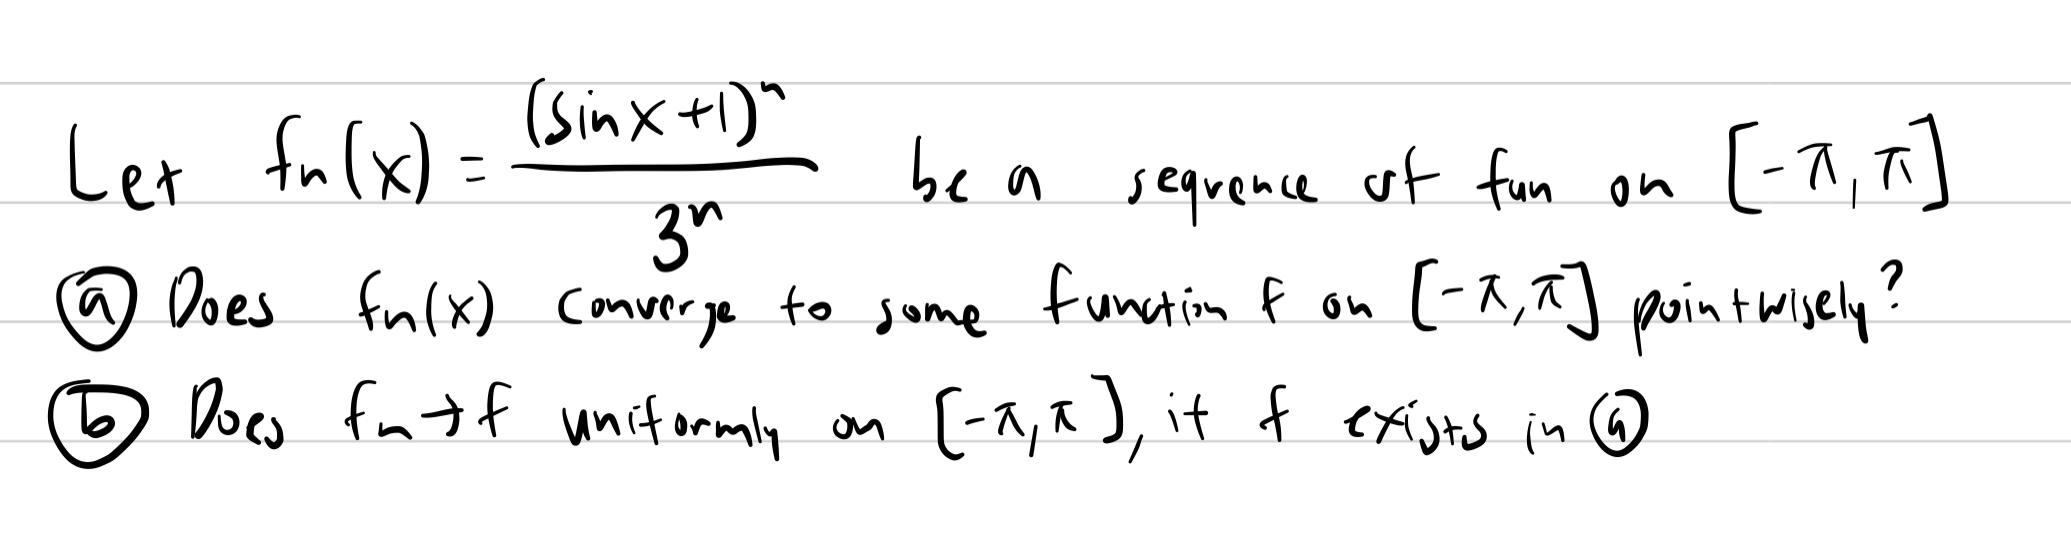 Let fn(x) = (sinx+1)^n / 3^n be a sequence of fun on [-π, π]
ⓐ Does fn(x) converge to some function f on [-π, π] pointwisely?
ⓑ Does fn→f uniformly on [-π, π], if f exists in ⓐ